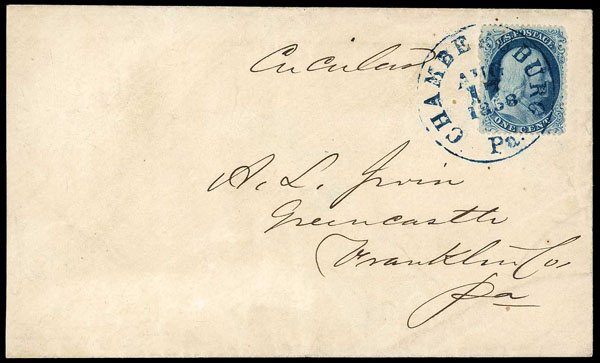 Circular
U.S. POSTAGE
ONE CENT
CHAMBERSBURG
AUG
1858
Pa.
A. L. Irvin
Greencastle
Franklin Co,
Pa